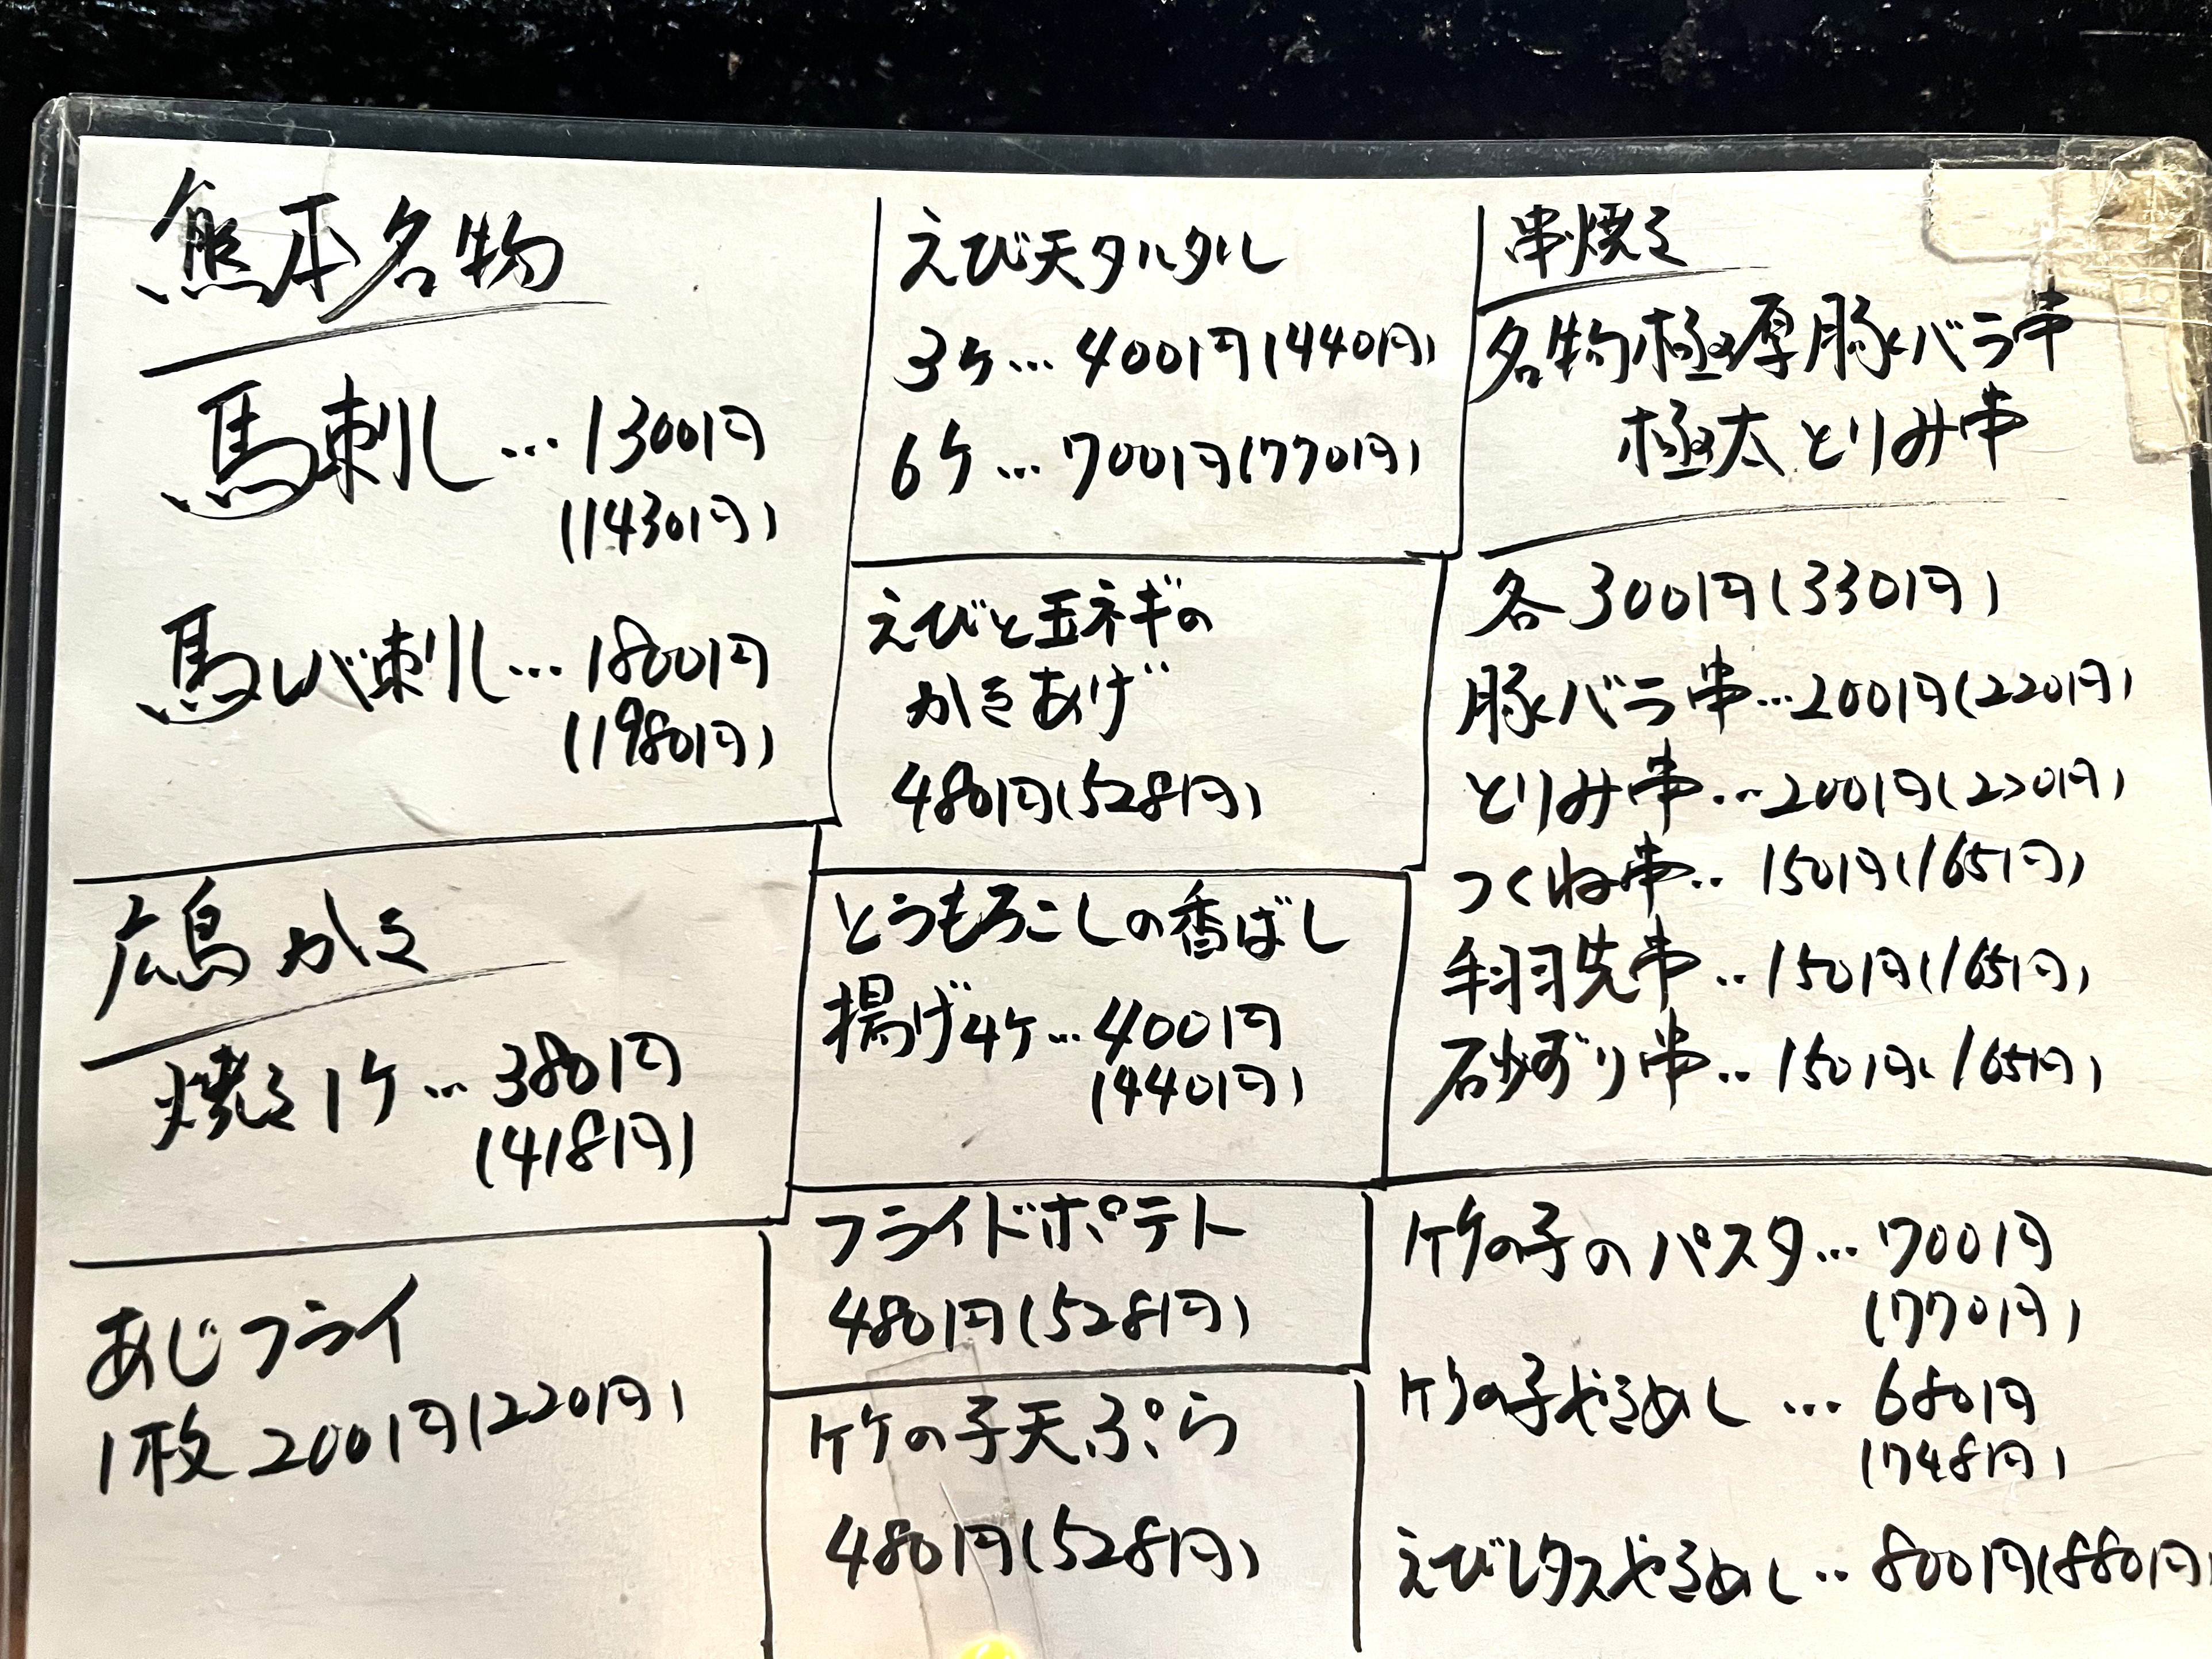 熊本名物
馬刺し…1300円
(1430円)
馬レバ刺し…1800円
(1980円)
広島かき
焼き1ケ…380円
(418円)
あじフライ
1枚 200円(220円)
えび天タルタル
3ケ…400円(440円)
6ケ…700円(770円)
えびと玉ネギの
かきあげ
480円(528円)
とうもろこしの香ばし
揚げ4ケ…400円
(440円)
フライドポテト
480円(528円)
竹の子天ぷら
480円(528円)
串焼き
名物極厚豚バラ串
極太とりみ串
各300円(330円)
豚バラ串…200円(220円)
とりみ串…200円(220円)
つくね串‥150円(165円)
手羽先串‥150円(165円)
砂ずり串‥150円(165円)
竹の子のパスタ…700円
(770円)
竹の子やきめし…680円
(748円)
えびレタスやきめし‥800円(880円)